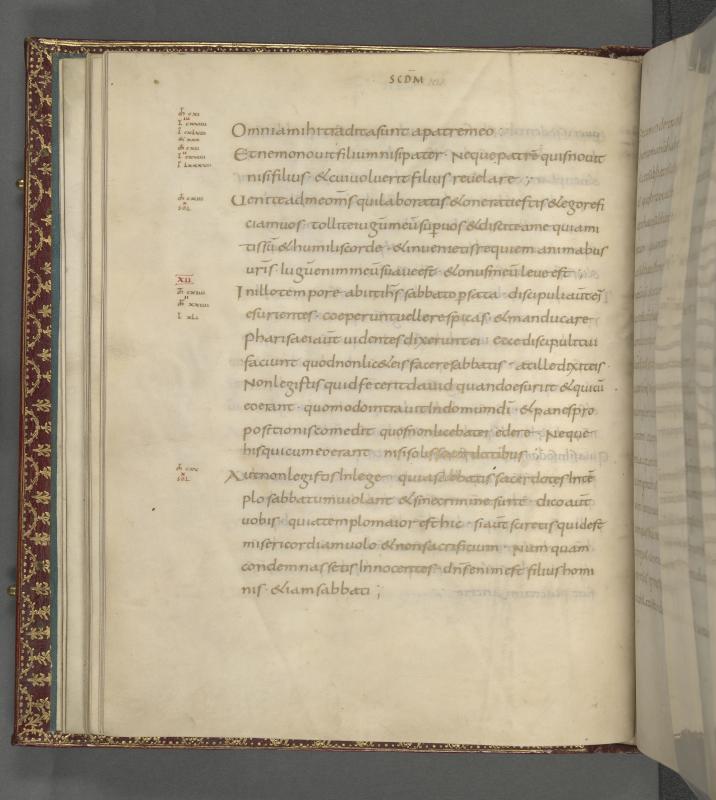 SCDM
Omnia mihi tradita sunt a patre meo ;
Et nemo novit filium nisi pater · Neque patrē quis novit
nisi filius · & cui voluerit filius revelare ;
Uenite ad me om̄s qui laboratis & onerati estis & ego refi
ciam uos · tollite iugū meū sup uos & discite a me quia mi
tis sū & humilis corde · & invenietis requiem animabus
uris̄ · Iugū enim meū suave est · & onus meū leve est ;
XII
In illo tempore abiit ih̄s sabbato p sata · discipuli aūt ei
esurientes · coeperunt vellere spicas · & manducare
pharisaei aūt videntes dixerunt ei · ecce discipuli tui
faciunt quod non lic& eis facere sabbatis · at ille dixit eis
Non legistis quid fecerit david quando esuriit & qui cū
eo erant · quomodo intravit in domum dī · & panes pro
positionis comedit · quos non licebat ei edere · Neque
his qui cum eo erant · nisi solis sacerdotibus
Aut non legistis in lege · quia sabbatis sacerdotes in tē
plo sabbatum violant & sine crimine sunt · dico aūt
vobis · quia templo maior est hic · si aūt sciretis quid est
misericordiam volo & non sacrificium · Num quam
condemnassetis innocentes · dn̄s enim est filius homi
nis · &iam sabbati ;